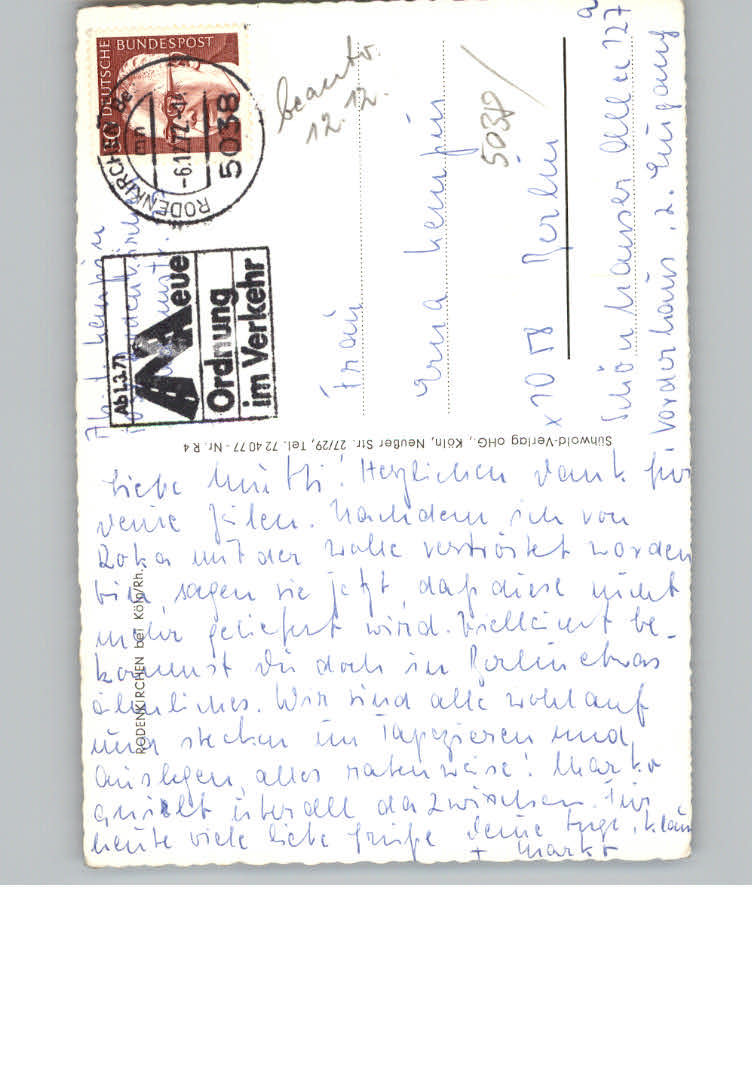 DEUTSCHE BUNDESPOST
RODENKIRCHEN
5038
Ab 1.3.71
Neue
Ordnung
im Verkehr
beantw.
12.12.
5038
Abs. Kempin
Frau
Erna Kempin
X 1058 Berlin
Schönhauser Allee 127 a
Vorderhaus, 2. Eingang
Sühwold-Verlag oHG., Köln, Neußer Str. 27/29, Tel. 72 40 77 - Nr. R 4
RODENKIRCHEN bei Köln/Rh.
Liebe Mutti! Herzlichen Dank für
deine Zeilen. Nachdem ich von
Roka mit der Wolle vertröstet worden
bin, sagen sie jetzt, daß diese nicht
mehr geliefert wird. Vielleicht be-
kommst du doch in Berlin etwas
ähnliches. Wir sind alle wohlauf
und stecken im Tapezieren und
Auslegen, alles ratenweise! Marko
quirlt überall dazwischen. Für
heute viele liebe Grüße deine Inge, Klaus
+ Marko